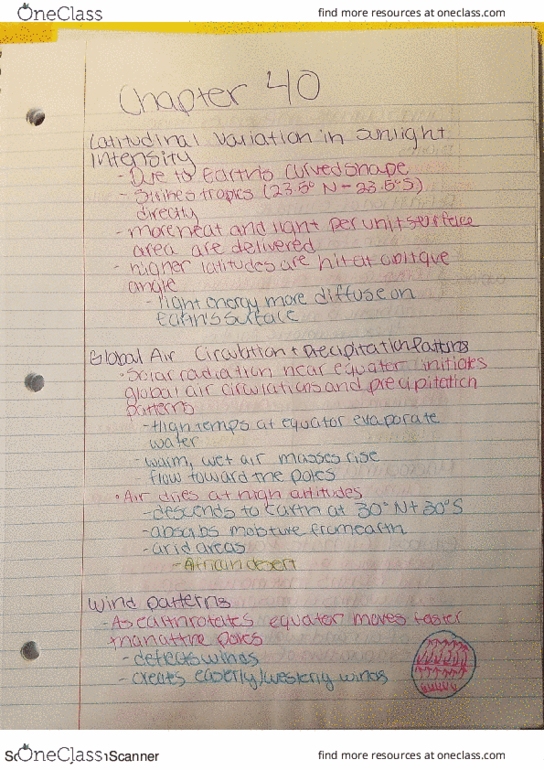 OneClass
find more resources at oneclass.com
Chapter 40
Latitudinal variation in sunlight
intensity
- Due to Earth's curved shape
- Strikes tropics (23.5° N - 23.5° S)
directly
- more heat and light per unit surface
area are delivered
- higher latitudes are hit at oblique
angle
- light energy more diffuse on
Earth's surface
Global Air Circulation + Precipitation Patterns
• Solar radiation near equator initiates
global air circulations and precipitation
patterns
- High temps at equator evaporate
water
- warm, wet air masses rise
- flow toward the poles
• Air dries at high altitudes
- descends to Earth at 30° N + 30° S
- absorbs moisture from earth
- arid areas
- African desert
Wind patterns
- As earth rotates equator moves faster
than at the poles
- deflects winds
- creates easterly/westerly winds
OneClass
Scanner
find more resources at oneclass.com